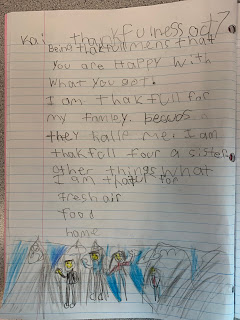 Kai thankfulness oct 7
Being thakfull mens that
you are Happy with
what you got.
I am thakfull for
my family. becuds
they halle me. I am
thakfull four a sister
other things what
I am for
fresh air
food
home